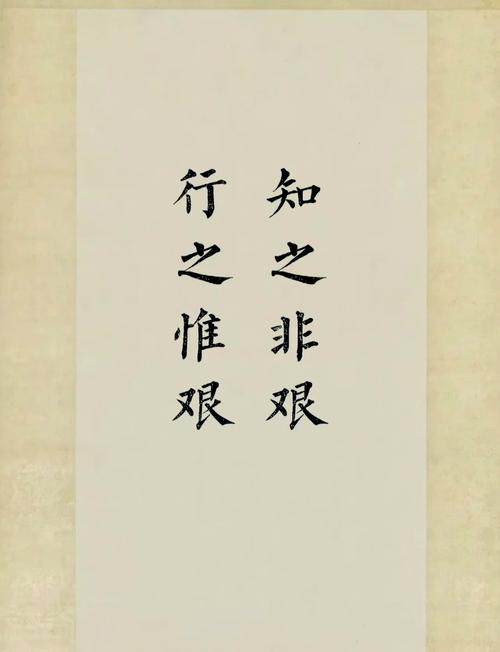 知之非艰
行之惟艰